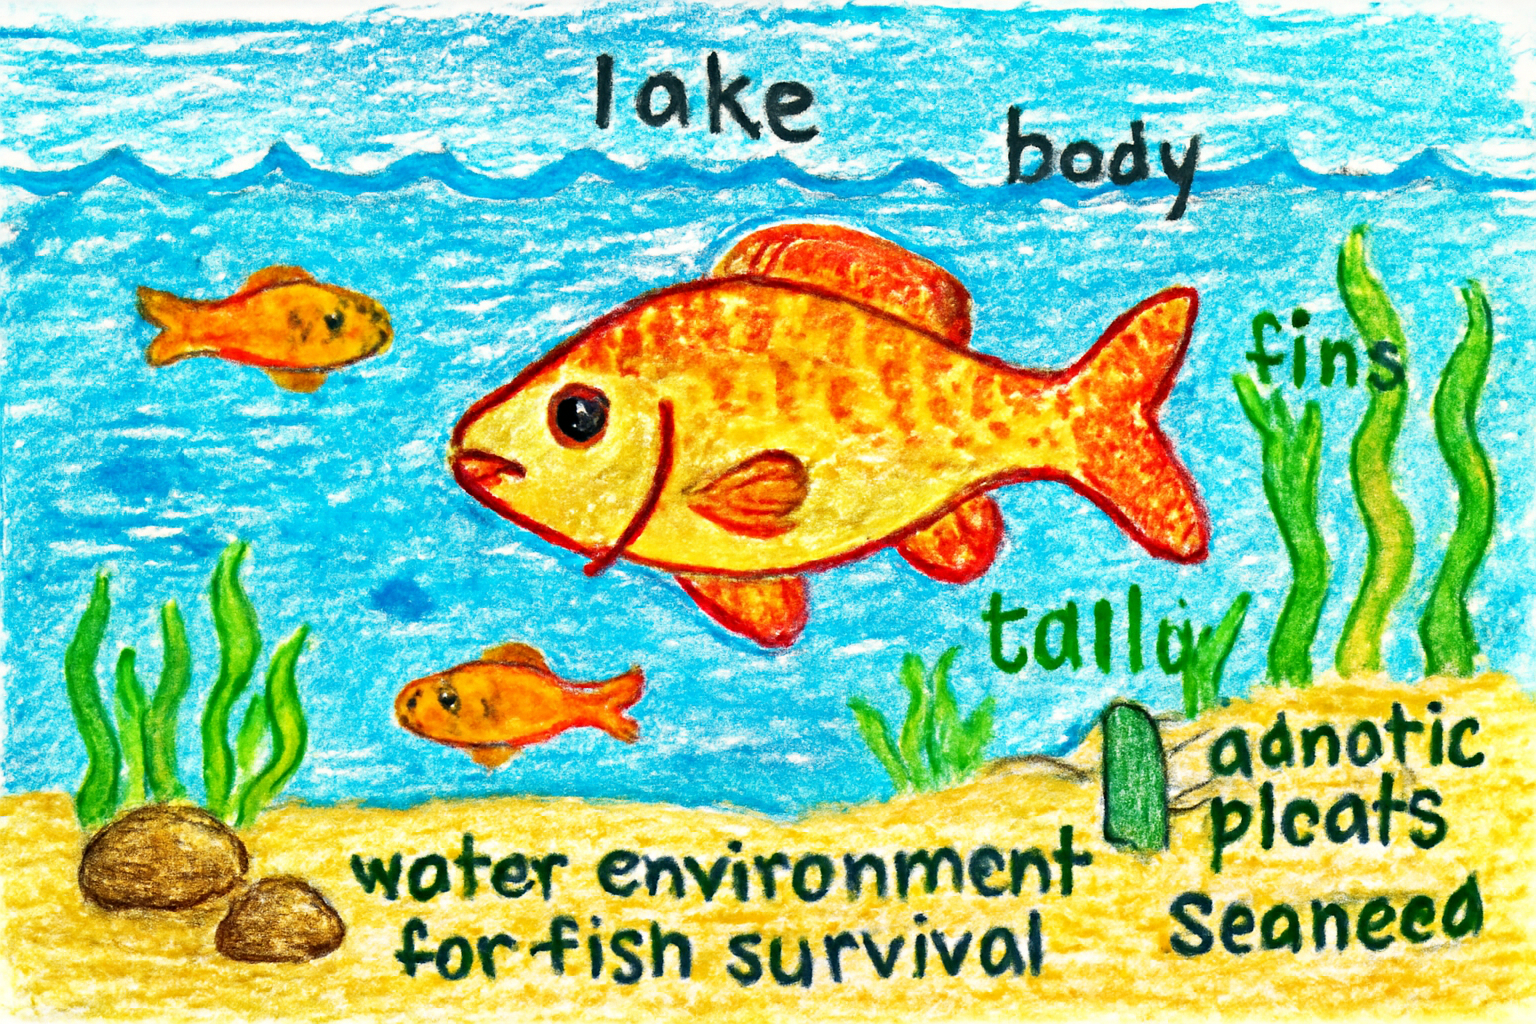 lake
body
fins
tallq
adnotic
plcats
water environment
for fish survival
Seaneed